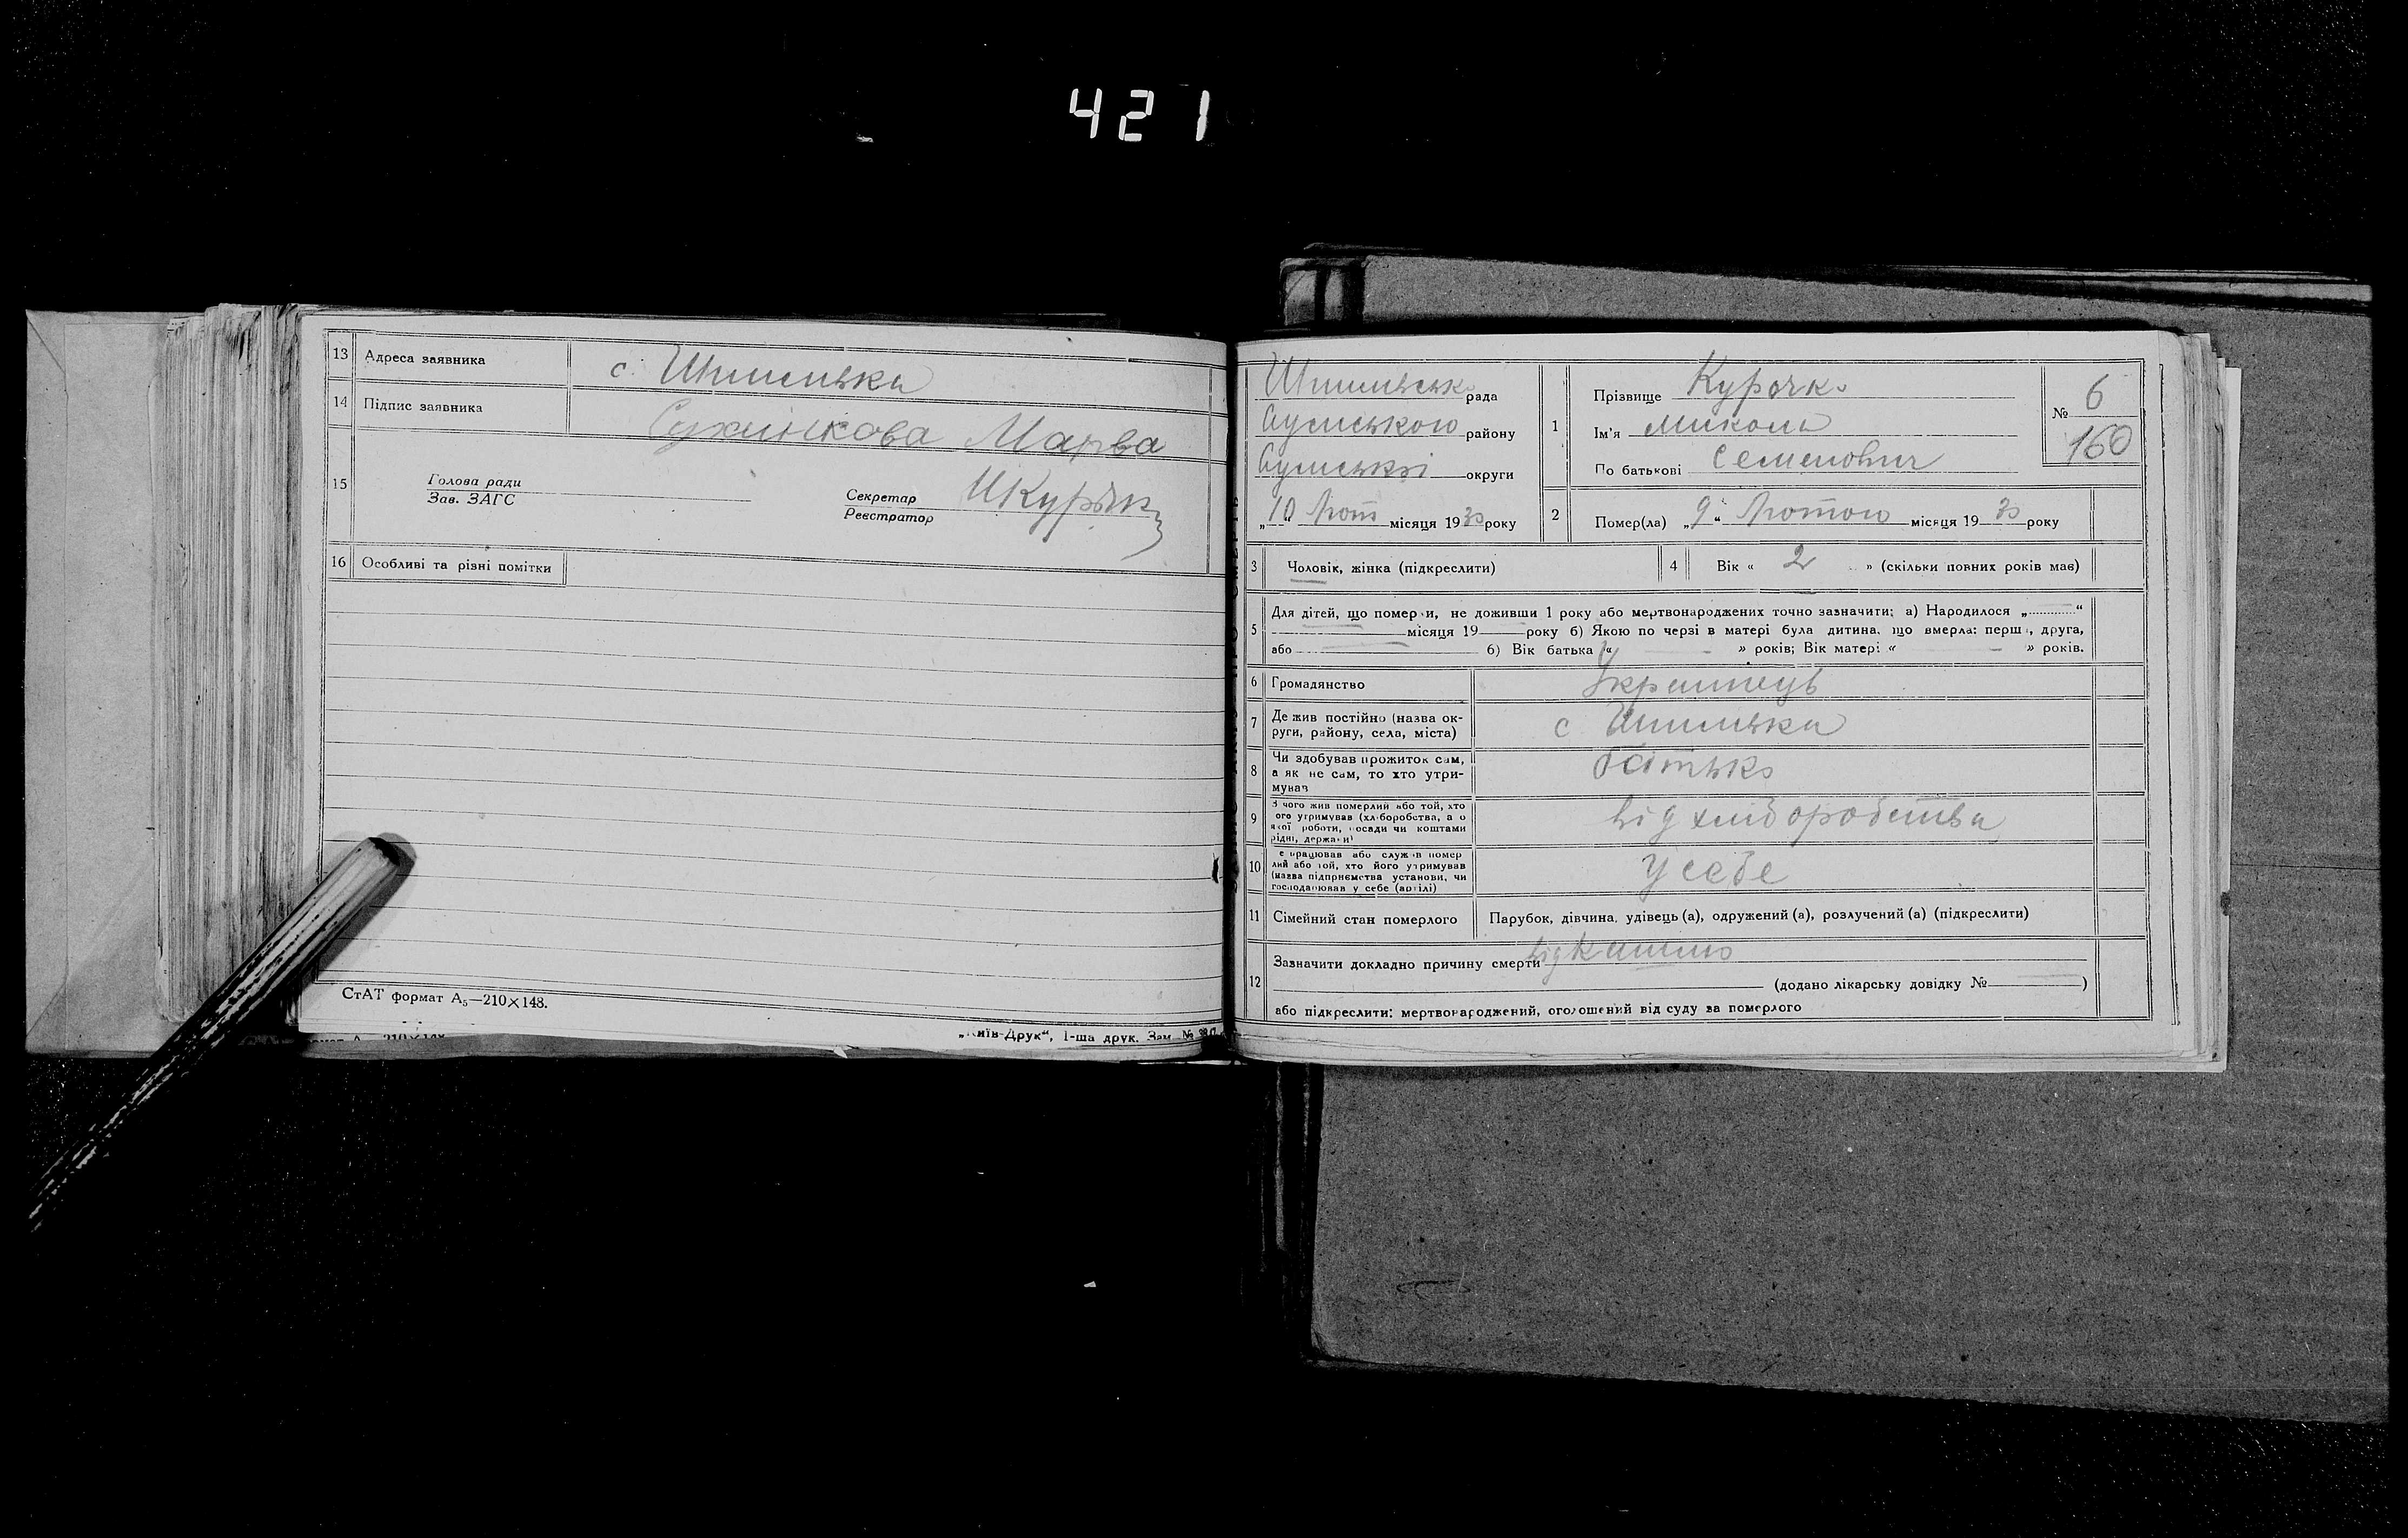 421
13 Адреса заявника с. Шпилька
14 Підпис заявника Марва
15 Голова ради
Зав. ЗАГС
Секретар
Реєстратор
16 Особливі та різні помітки
СтАТ формат А₅—210×148.
„Київ-Друк“, 1-ша друк. Зам. №
рада
Сумського району
Сумської округи
„10“ Лют місяця 1930 року
1 Прізвище Курочко
Ім'я Микола
По батькові Семенович
№ 6
160
2 Помер(ла) „9“ Лютого місяця 1930 року
3 Чоловік, жінка (підкреслити)
4 Вік « 2 » (скільки повних років мав)
5 Для дітей, що померли, не доживши 1 року або мертвонароджених точно зазначити; а) Народилося „ “
місяця 19 року б) Якою по черзі в матері була дитина, що вмерла: перша, друга,
або б) Вік батька « » років; Вік матері « » років.
6 Громадянство Українець
7 Де жив постійно (назва ок-
руги, району, села, міста) с Шпилька
8 Чи здобував прожиток сам,
а як не сам, то хто утри-
мував батько
9 З чого жив померлий або той, хто
ого утримував (хліборобства, а о
якої роботи, посади чи коштами
рідні, держави) від хліборобства
10 е працював або служив помер
лий або той, хто його утримував
(назва підприємства установи, чи
господарював у себе (артілі) у себе
11 Сімейний стан померлого Парубок, дівчина, удівець (а), одружений (а), розлучений (а) (підкреслити)
12 Зазначити докладно причину смерти від кашлю
(додано лікарську довідку № )
або підкреслити: мертвонароджений, оголошений від суду за померлого